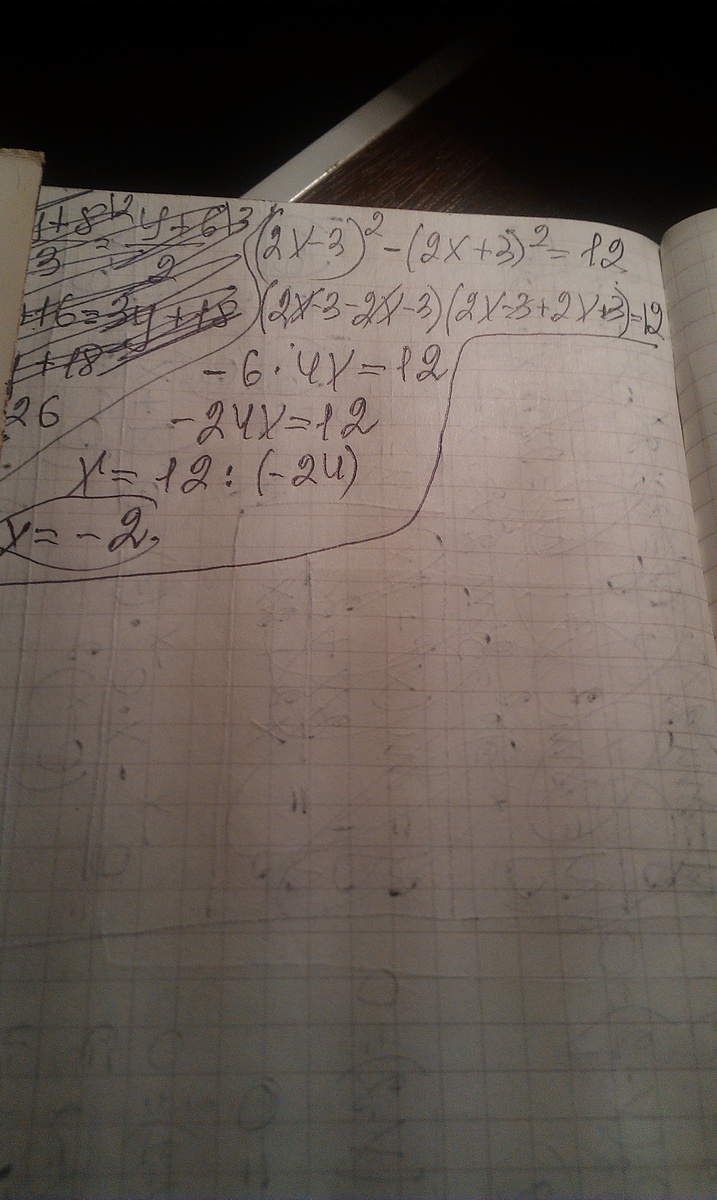 (2x-3)² - (2x+3)² = 12
(2x-3-2x-3)(2x-3+2x+3)=12
-6·4x=12
26
-24x=12
x=12:(-24)
x=-2